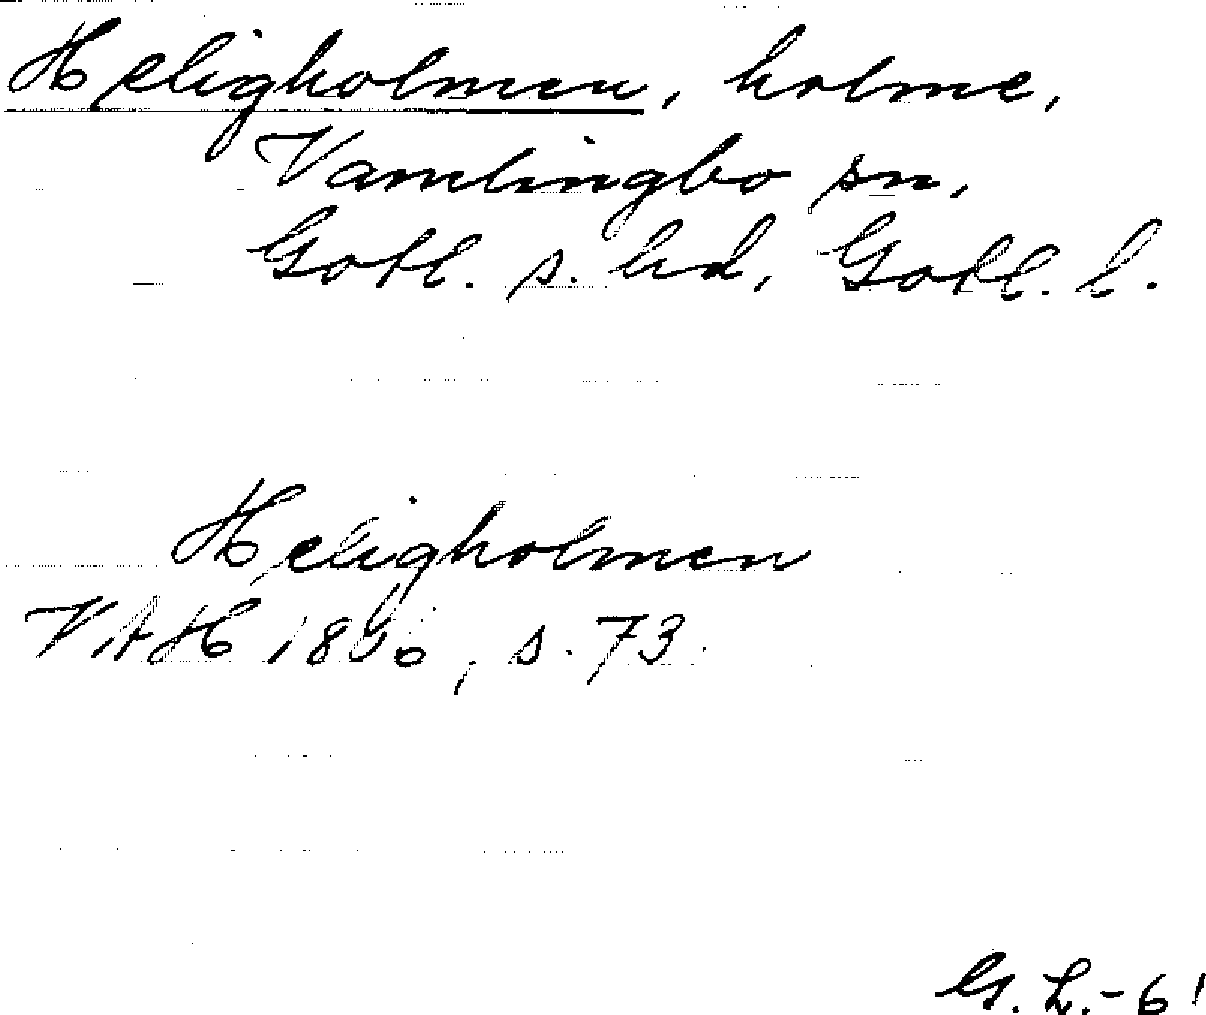 Heligholmen, holme,
Vamlingbo sn,
Gotl. s. hd, Gotl. l.
Heligholmen
VAH 1806, s. 73.
G. L. - 61